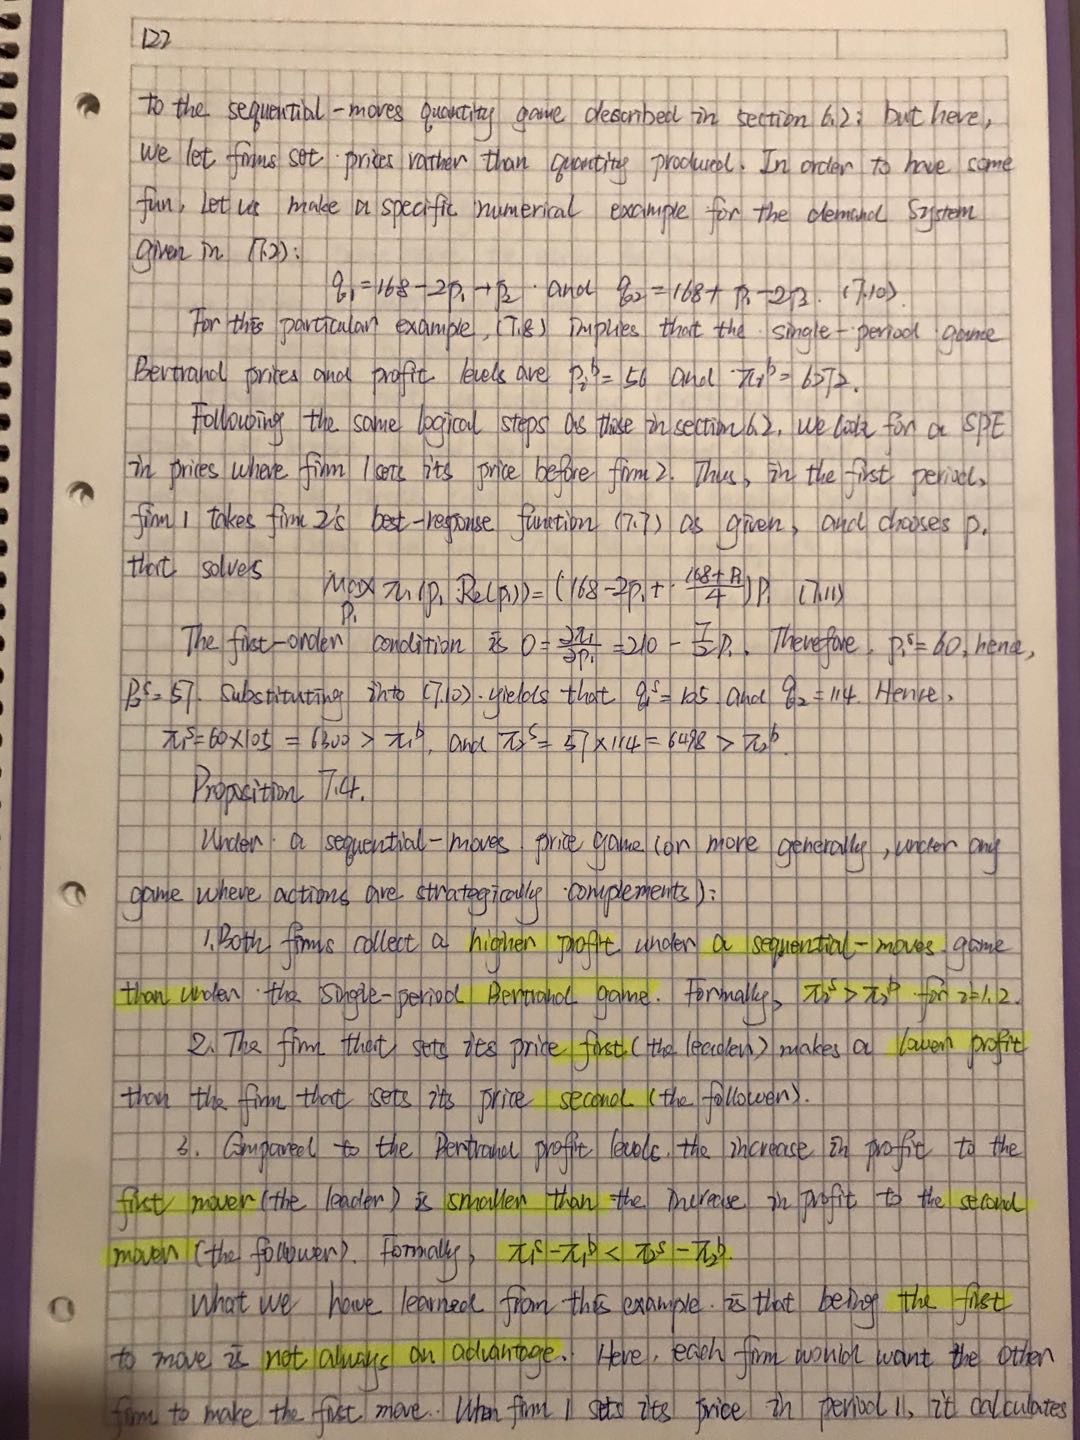 122
to the sequential-moves quantity game described in section 6.2; but here,
we let firms set prices rather than quantity produced. In order to have some
fun, Let us make a specific numerical example for the demand System
given in (7.2):
q₁=168-2p₁+p₂ and q₂=168+p₁-2p₂. (7.10).
For this particular example, (7.8) implies that the single-period game
Bertrand prices and profit levels are pᵢᵇ=56 and πᵢᵇ=6272.
Following the same logical steps as those in section 6.2, we look for a SPE
in prices where firm 1 sets its price before firm 2. Thus, in the first period,
firm 1 takes firm 2's best-response function (7.7) as given, and chooses p₁
that solves
Max p₁ π₁(p₁, R₂(p₁))=(168-2p₁+ (168+p₁)/4)p₁ (7.11)
The first-order condition is 0=∂π₁/∂p₁=210-7/2p₁. Therefore, p₁ˢ=60, hence,
p₂ˢ=57. Substituting into (7.10) yields that q₁ˢ=105 and q₂=114. Hence,
π₁ˢ=60×105=6300>π₁ᵇ, and π₂ˢ=57×114=6498>π₂ᵇ.
Proposition 7.4.
Under a sequential-moves price game (or more generally, under any
game where actions are strategically complements):
1. Both firms collect a higher profit under a sequential-moves game
than under the single-period Bertrand game. Formally, πᵢˢ>πᵢᵇ for i=1,2.
2. The firm that sets its price first (the leader) makes a lower profit
than the firm that sets its price second (the follower).
3. Compared to the Bertrand profit levels, the increase in profit to the
first mover (the leader) is smaller than the increase in profit to the second
mover (the follower). Formally, π₁ˢ-π₁ᵇ<π₂ˢ-π₂ᵇ.
What we have learned from this example is that being the first
to move is not always an advantage. Here, each firm would want the other
firm to make the first move. When firm 1 sets its price in period 1, it calculates